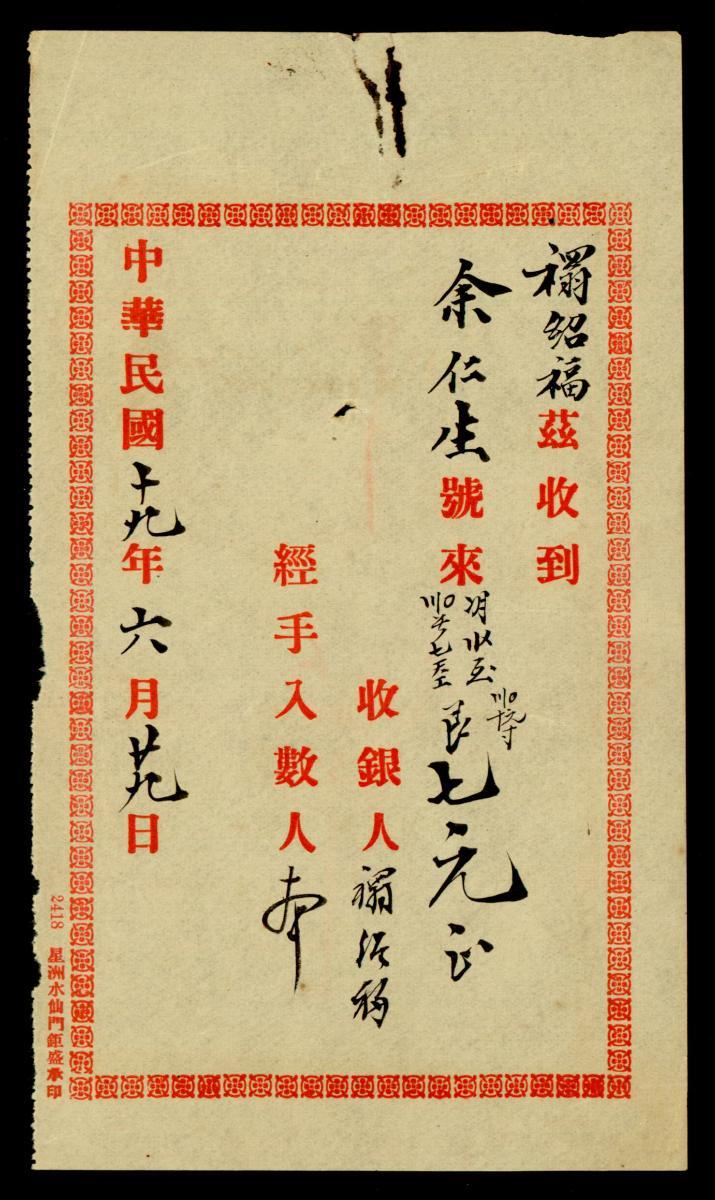 禤紹福茲收到
余仁生號來
艮七元正
收銀人禤紹福
經手入數人
中華民國十九年六月廿九日
2418 星洲水仙門鉅盛承印